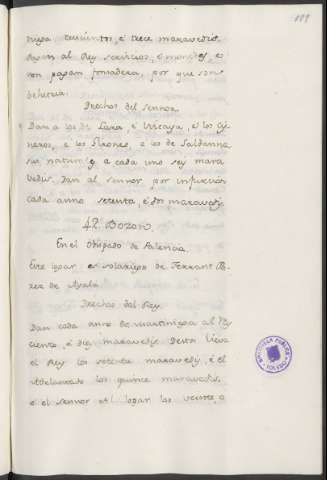 189
cientos, é trece maravedis.
Pagan al Rey servicios, é monedas, é
non pagan fonsadera, por que son
behetria.
Drechos del Sennor
Dan a los de Lara, é Vizcaya, é los Cis
neros, é los Girones, é los de Saldanna
sus naturales a cada uno sey mara
vedis. Dan al sennor por infurcion
cada anno setenta é dos maravedis.
42 Bozon
En el Obispado de Palencia.
Este logar es solariego de Ferrant Pe
rez de Ayala.
Drechos del Rey.
Dan cada anno de martiniega al Rey
ciento, é diez maravedis. Desta lieva
el Rey los setenta maravedis, é el
Adelantado los quince maravedis,
é el sennor del logar los veinte, é
BIBLIOTECA PUBLICA
TOLEDO